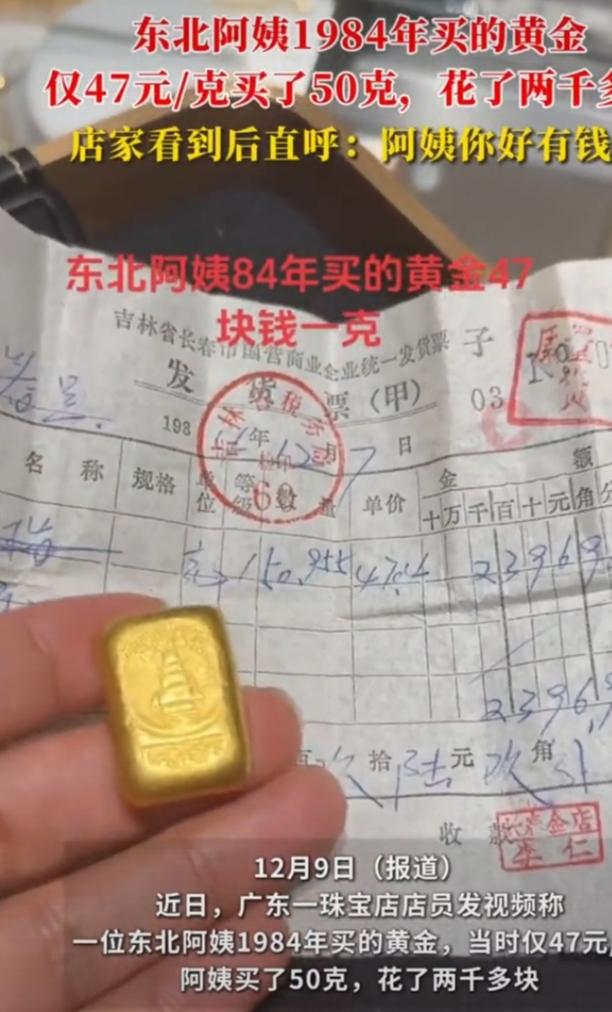 东北阿姨1984年买的黄金
仅47元/克买了50克，花了两千多
店家看到后直呼：阿姨你好有钱
东北阿姨84年买的黄金47
块钱一克
吉林省长春市国营商业企业统一发货票
子
发 货 票（甲）
03
198 年 12月7日
名 称 规格 单位 等级 数量 单价 金 额
十万千百十元角分
50.955 2396
2396
拾陆元 角
收 款
李仁
12月9日（报道）
近日，广东一珠宝店店员发视频称
一位东北阿姨1984年买的黄金，当时仅47元
阿姨买了50克，花了两千多块